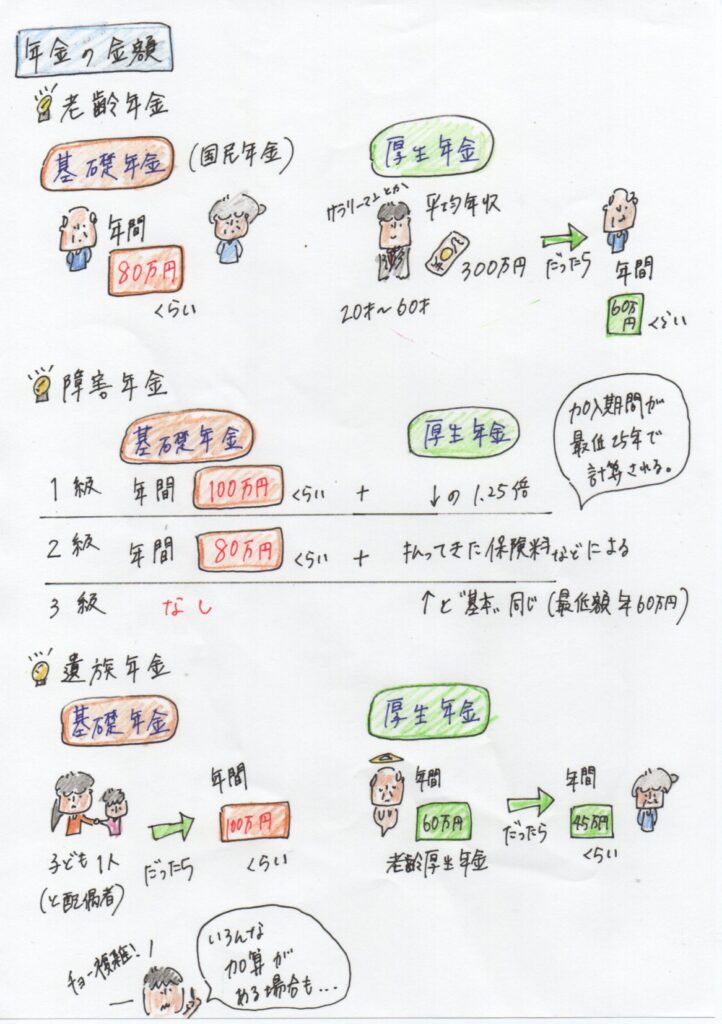 年金の金額
老齢年金
基礎年金 (国民年金)
厚生年金
年間
80万円
くらい
サラリーマンとか
平均年収
300万円
20才～60才
だったら
年間
60万円
くらい
障害年金
基礎年金
厚生年金
加入期間が
最低25年で
計算される。
1級 年間 100万円 くらい + ↓の1.25倍
2級 年間 80万円 くらい + 払ってきた保険料などによる
3級 なし ↑と"基本"同じ(最低額年60万円)
遺族年金
基礎年金
厚生年金
子ども1人
(と配偶者)
だったら
年間
100万円
くらい
年間
60万円
老齢厚生年金
だったら
年間
45万円
くらい
チョー複雑!
いろんな
加算が
ある場合も...